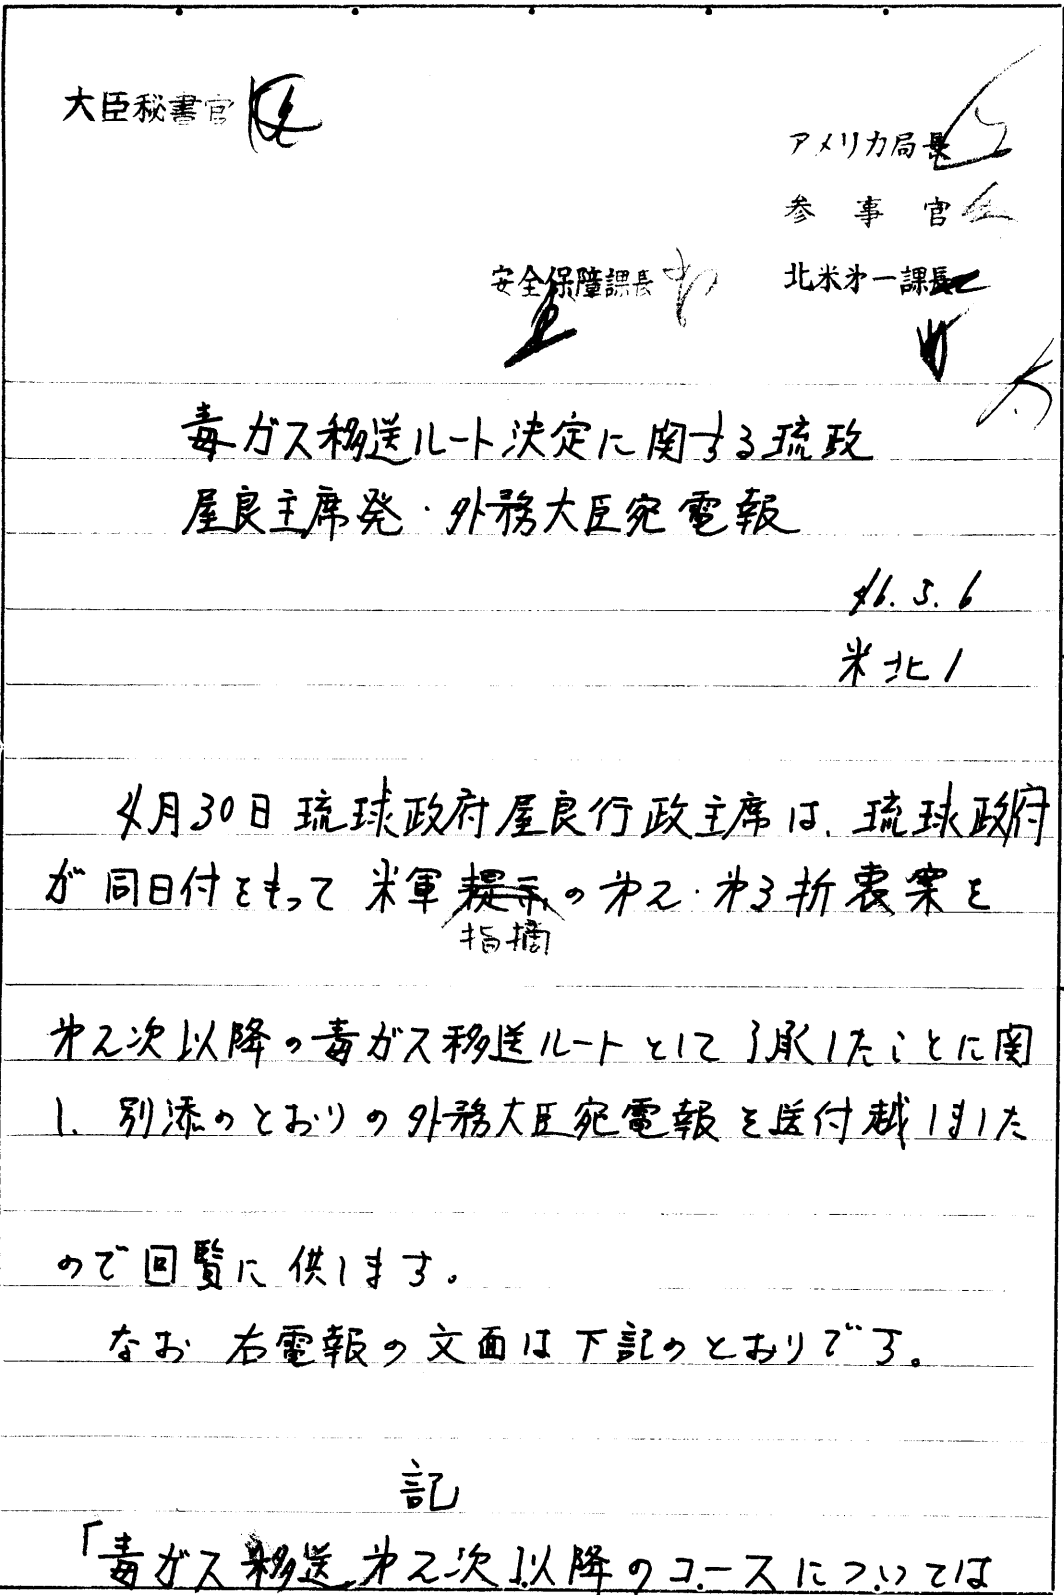 大臣秘書官
アメリカ局長
参事官
安全保障課長
北米第一課長
毒ガス移送ルート決定に関する琉政
屋良主席発・外務大臣宛電報
46.5.6
米北1
4月30日琉球政府屋良行政主席は、琉球政府
が同日付をもって米軍提示の第2・第3折衷案を
指摘
第2次以降の毒ガス移送ルートとして了承したことに関
し、別添のとおりの外務大臣宛電報を送付越しました
ので回覧に供します。
なお右電報の文面は下記のとおりです。
記
「毒ガス移送第2次以降のコースについては